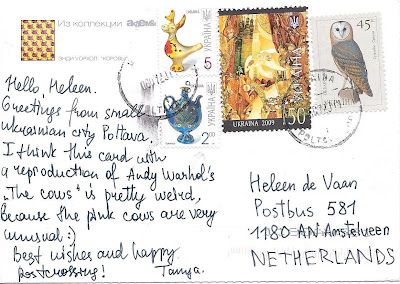 Из коллекции академия
ЭНДИ УОРХОЛ "КОРОВЫ"
УКРАЇНА
5
УКРАЇНА
2.00
УКРАЇНА
UKRAINA 2009
1.50
45¢
Hello, Heleen.
Greetings from small
ukrainian city Poltava.
I think this card with
a reproduction of Andy Warhol's
„The cows" is pretty weird,
because the pink cows are very
unusual :)
Best wishes and happy
postcrossing! Tanya.
Heleen de Vaan
Postbus 581
1180 AN Amstelveen
NETHERLANDS